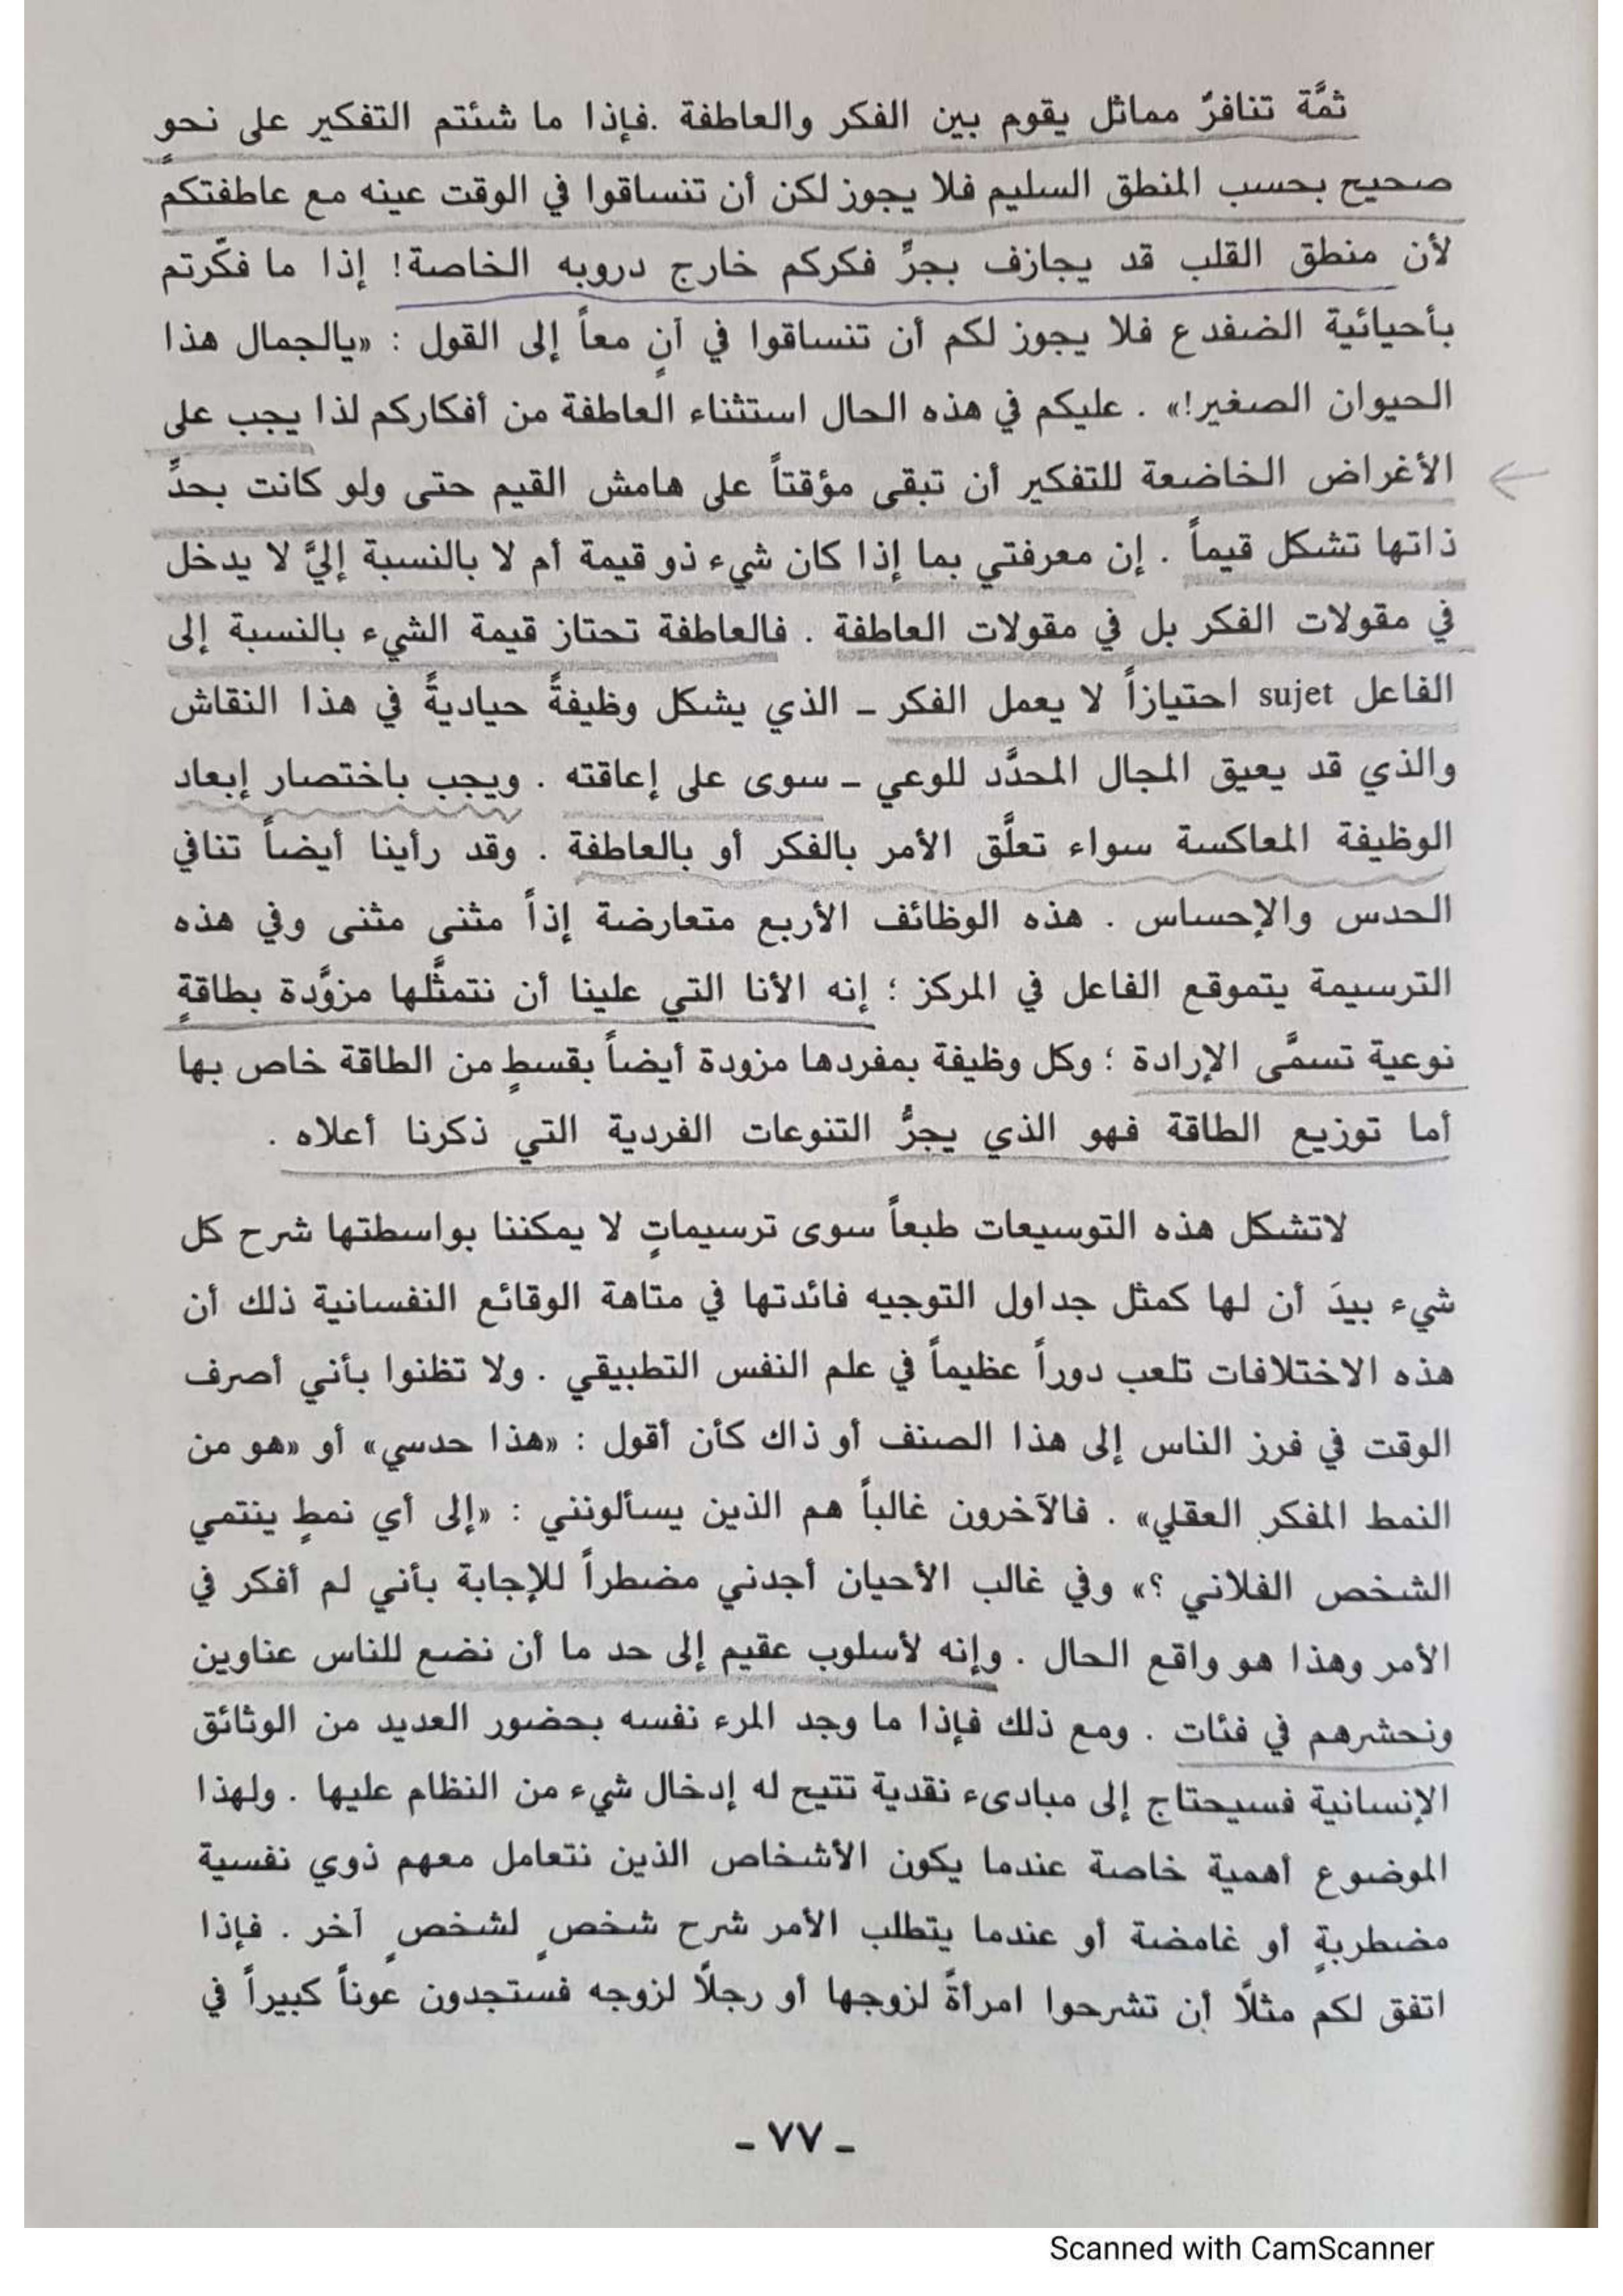 ثمَّة تنافرٌ مماثل يقوم بين الفكر والعاطفة .فإذا ما شئتم التفكير على نحوٍ
صحيح بحسب المنطق السليم فلا يجوز لكن أن تنساقوا في الوقت عينه مع عاطفتكم
لأن منطق القلب قد يجازف بجرِّ فكركم خارج دروبه الخاصة! إذا ما فكَّرتم
بأحيائية الضفدع فلا يجوز لكم أن تنساقوا في آنٍ معاً إلى القول : «يالجمال هذا
الحيوان الصغير!» . عليكم في هذه الحال استثناء العاطفة من أفكاركم لذا يجب على
الأغراض الخاضعة للتفكير أن تبقى مؤقتاً على هامش القيم حتى ولو كانت بحدِّ
ذاتها تشكل قيماً . إن معرفتي بما إذا كان شيء ذو قيمة أم لا بالنسبة إليَّ لا يدخل
في مقولات الفكر بل في مقولات العاطفة . فالعاطفة تحتاز قيمة الشيء بالنسبة إلى
الفاعل sujet احتيازاً لا يعمل الفكر ــ الذي يشكل وظيفةً حياديةً في هذا النقاش
والذي قد يعيق المجال المحدَّد للوعي ــ سوى على إعاقته . ويجب باختصار إبعاد
الوظيفة المعاكسة سواء تعلَّق الأمر بالفكر أو بالعاطفة . وقد رأينا أيضاً تنافي
الحدس والإحساس . هذه الوظائف الأربع متعارضة إذاً مثنى مثنى وفي هذه
الترسيمة يتموقع الفاعل في المركز ؛ إنه الأنا التي علينا أن نتمثَّلها مزوَّدة بطاقةٍ
نوعية تسمَّى الإرادة ؛ وكل وظيفة بمفردها مزودة أيضاً بقسطٍ من الطاقة خاص بها
أما توزيع الطاقة فهو الذي يجرُّ التنوعات الفردية التي ذكرنا أعلاه .
لاتشكل هذه التوسيعات طبعاً سوى ترسيماتٍ لا يمكننا بواسطتها شرح كل
شيء بيدَ أن لها كمثل جداول التوجيه فائدتها في متاهة الوقائع النفسانية ذلك أن
هذه الاختلافات تلعب دوراً عظيماً في علم النفس التطبيقي . ولا تظنوا بأني أصرف
الوقت في فرز الناس إلى هذا الصنف أو ذاك كأن أقول : «هذا حدسي» أو «هو من
النمط المفكر العقلي» . فالآخرون غالباً هم الذين يسألونني : «إلى أي نمطٍ ينتمي
الشخص الفلاني ؟» وفي غالب الأحيان أجدني مضطراً للإجابة بأني لم أفكر في
الأمر وهذا هو واقع الحال . وإنه لأسلوب عقيم إلى حد ما أن نضع للناس عناوين
ونحشرهم في فئات . ومع ذلك فإذا ما وجد المرء نفسه بحضور العديد من الوثائق
الإنسانية فسيحتاج إلى مبادىء نقدية تتيح له إدخال شيء من النظام عليها . ولهذا
الموضوع أهمية خاصة عندما يكون الأشخاص الذين نتعامل معهم ذوي نفسية
مضطربةٍ أو غامضة أو عندما يتطلب الأمر شرح شخصٍ لشخصٍ آخر . فإذا
اتفق لكم مثلاً أن تشرحوا امرأةً لزوجها أو رجلاً لزوجه فستجدون عوناً كبيراً في
ــ ٧٧ ــ
Scanned with CamScanner